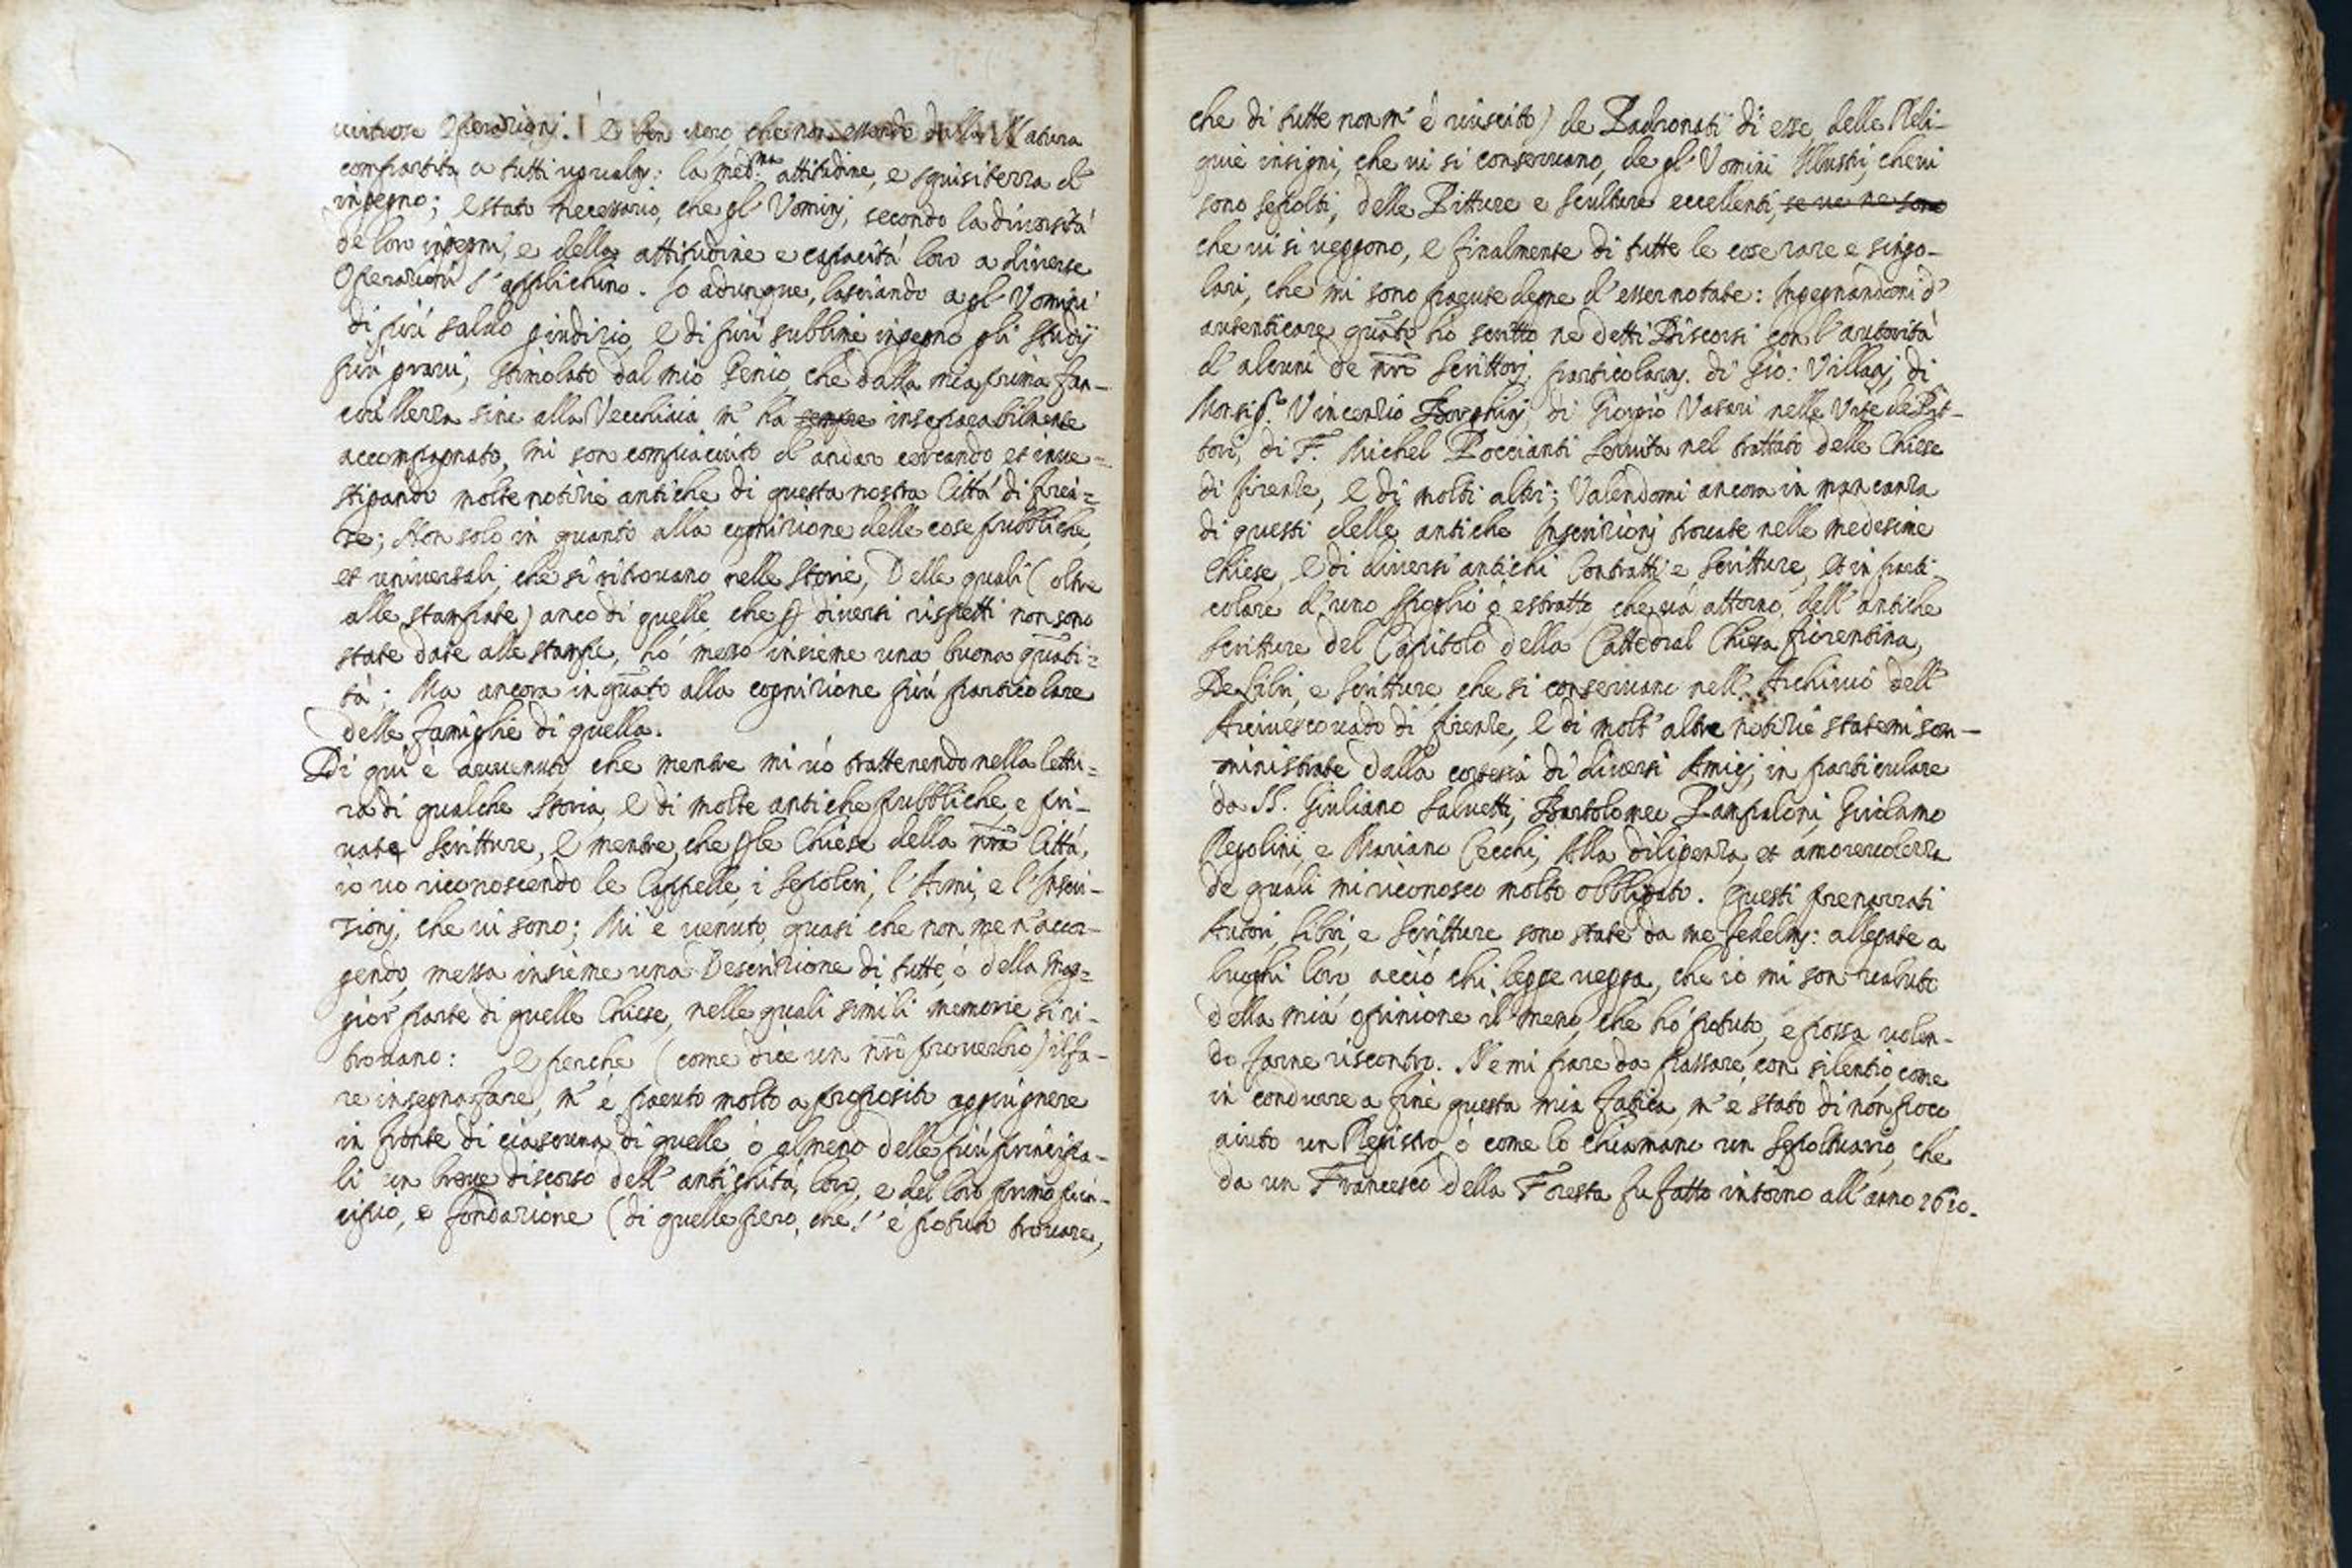 virtuose Operazionj. È ben vero, che non essendo dalla Natura
compartita a tutti ugualm: la med.ma attitudine, e squisitezza d'
ingegno; è stato necessario, che gl' Uominj, secondo la diversità
de loro ingegni, e della attitudine e capacità loro a diverse
Operazioni s' applichino. Io adunque, lasciando a gl' Uomini
di più saldo giudizio, e di più sublime ingegno gli Studij
più gravi, stimolato dal mio Genio, che dalla mia prima fan-
ciullezza sino alla Vecchiaia m' ha sempre inseparabilmente
accompagnato, mi son compiaciuto d' andar cercando et inve=
stigando molte notizie antiche di questa nostra Città di Firen=
ze; Non solo in quanto alla cognizione delle cose pubbliche,
et universali, che si ritrovano nelle Storie, Delle quali (oltre
alle stampate) anco di quelle, che p diversi rispetti non sono
state date alle stampe, hò messo insieme una buona quãti=
tà; Ma ancora in quãto alla cognizione più particolare
delle famiglie di quella.
Di qui è avvenuto che mentre mi vò trattenendo nella lettu=
ra di qualche Storia, e di molte antiche pubbliche, e pri-
vate Scritture, e mentre, che p le Chiese della nrã Città,
io vo riconoscendo le Cappelle, i Sepolcri, l' Armi, e l' Inscri-
zionj, che vi sono; Mi è venuto, quasi che non me n' accor-
gendo, messa insieme una Descrizione di tutte, ò della mag=
gior parte di quelle Chiese, nelle quali simili memorie si ri-
trovano: e perche (come dice un nrõ proverbio) il fa-
re insegna fare, m' è paruto molto a proposito aggiugnere
in fronte di ciascuna di quelle, ò almeno delle più principa-
li un breve discorso dell' antichità loro, e del loro primo prin-
cipio, e fondazione (di quelle però, che s' è potuto trovare,
che di tutte non m' è riuscito) de Padronati di esse, delle Reli-
quie insigni, che vi si conservano, de gl' Uomini Illustri, che vi
sono sepolti, delle Pitture e Sculture eccellenti, se ve ne sono
che vi si veggono, e finalmente di tutte le cose rare e singo-
lari, che mi sono parute degne d' esser notate: Ingegnandomi d'
autenticare quãto hò scritto ne detti Discorsi con l' autorità
d' alcuni de nrĩ Scrittorj, particolarm. di Gio: Villanj, di
Monsig.r Vincenzio Borghinj, di Giorgio Vasari nelle Vite de Pit-
tori, di F. Michel Poccianti Servita nel trattato delle Chiese
di Firenze, e di molti altri; Valendomi ancora in mancanza
di questi delle antiche Inscrizionj trovate nelle medesime
Chiese, e di diversi antichi Contratti e Scritture, et in parti-
colare d' uno Spoglio ò estratto, che và attorno, dell' antiche
Scritture del Capitolo della Cattedral Chiesa Fiorentina,
De Libri, e Scritture, che si conservano nell' Archivio dell'
Arcivescovado di Firenze, e di molt' altre notizie statemi som-
ministrate dalla cortesia di diversi Amicj, in particulare
da SS. Giuliano Salvetti, Bartolomeo Pampaloni, Girolamo
Pegolini, e Mariano Cecchi, Alla diligenza, et amorevolezza
de quali mi riconosco molto obbligato. Questi prenarrati
Autori, Libri, e Scritture sono state da me fedelm: allegate a
luoghi loro, acciò chi legge vegga, che io mi son valuto
della mia opinione il meno, che hò potuto, e possa volen-
do farne riscontro. Ne mi pare da passare con silentio, come
in condurre a fine questa mia fatica, m' è stato di non poco
aiuto un Registro, ò come lo chiamano un Sepoltuario, che
da un Francesco della Foresta fu fatto intorno all' anno 1610.